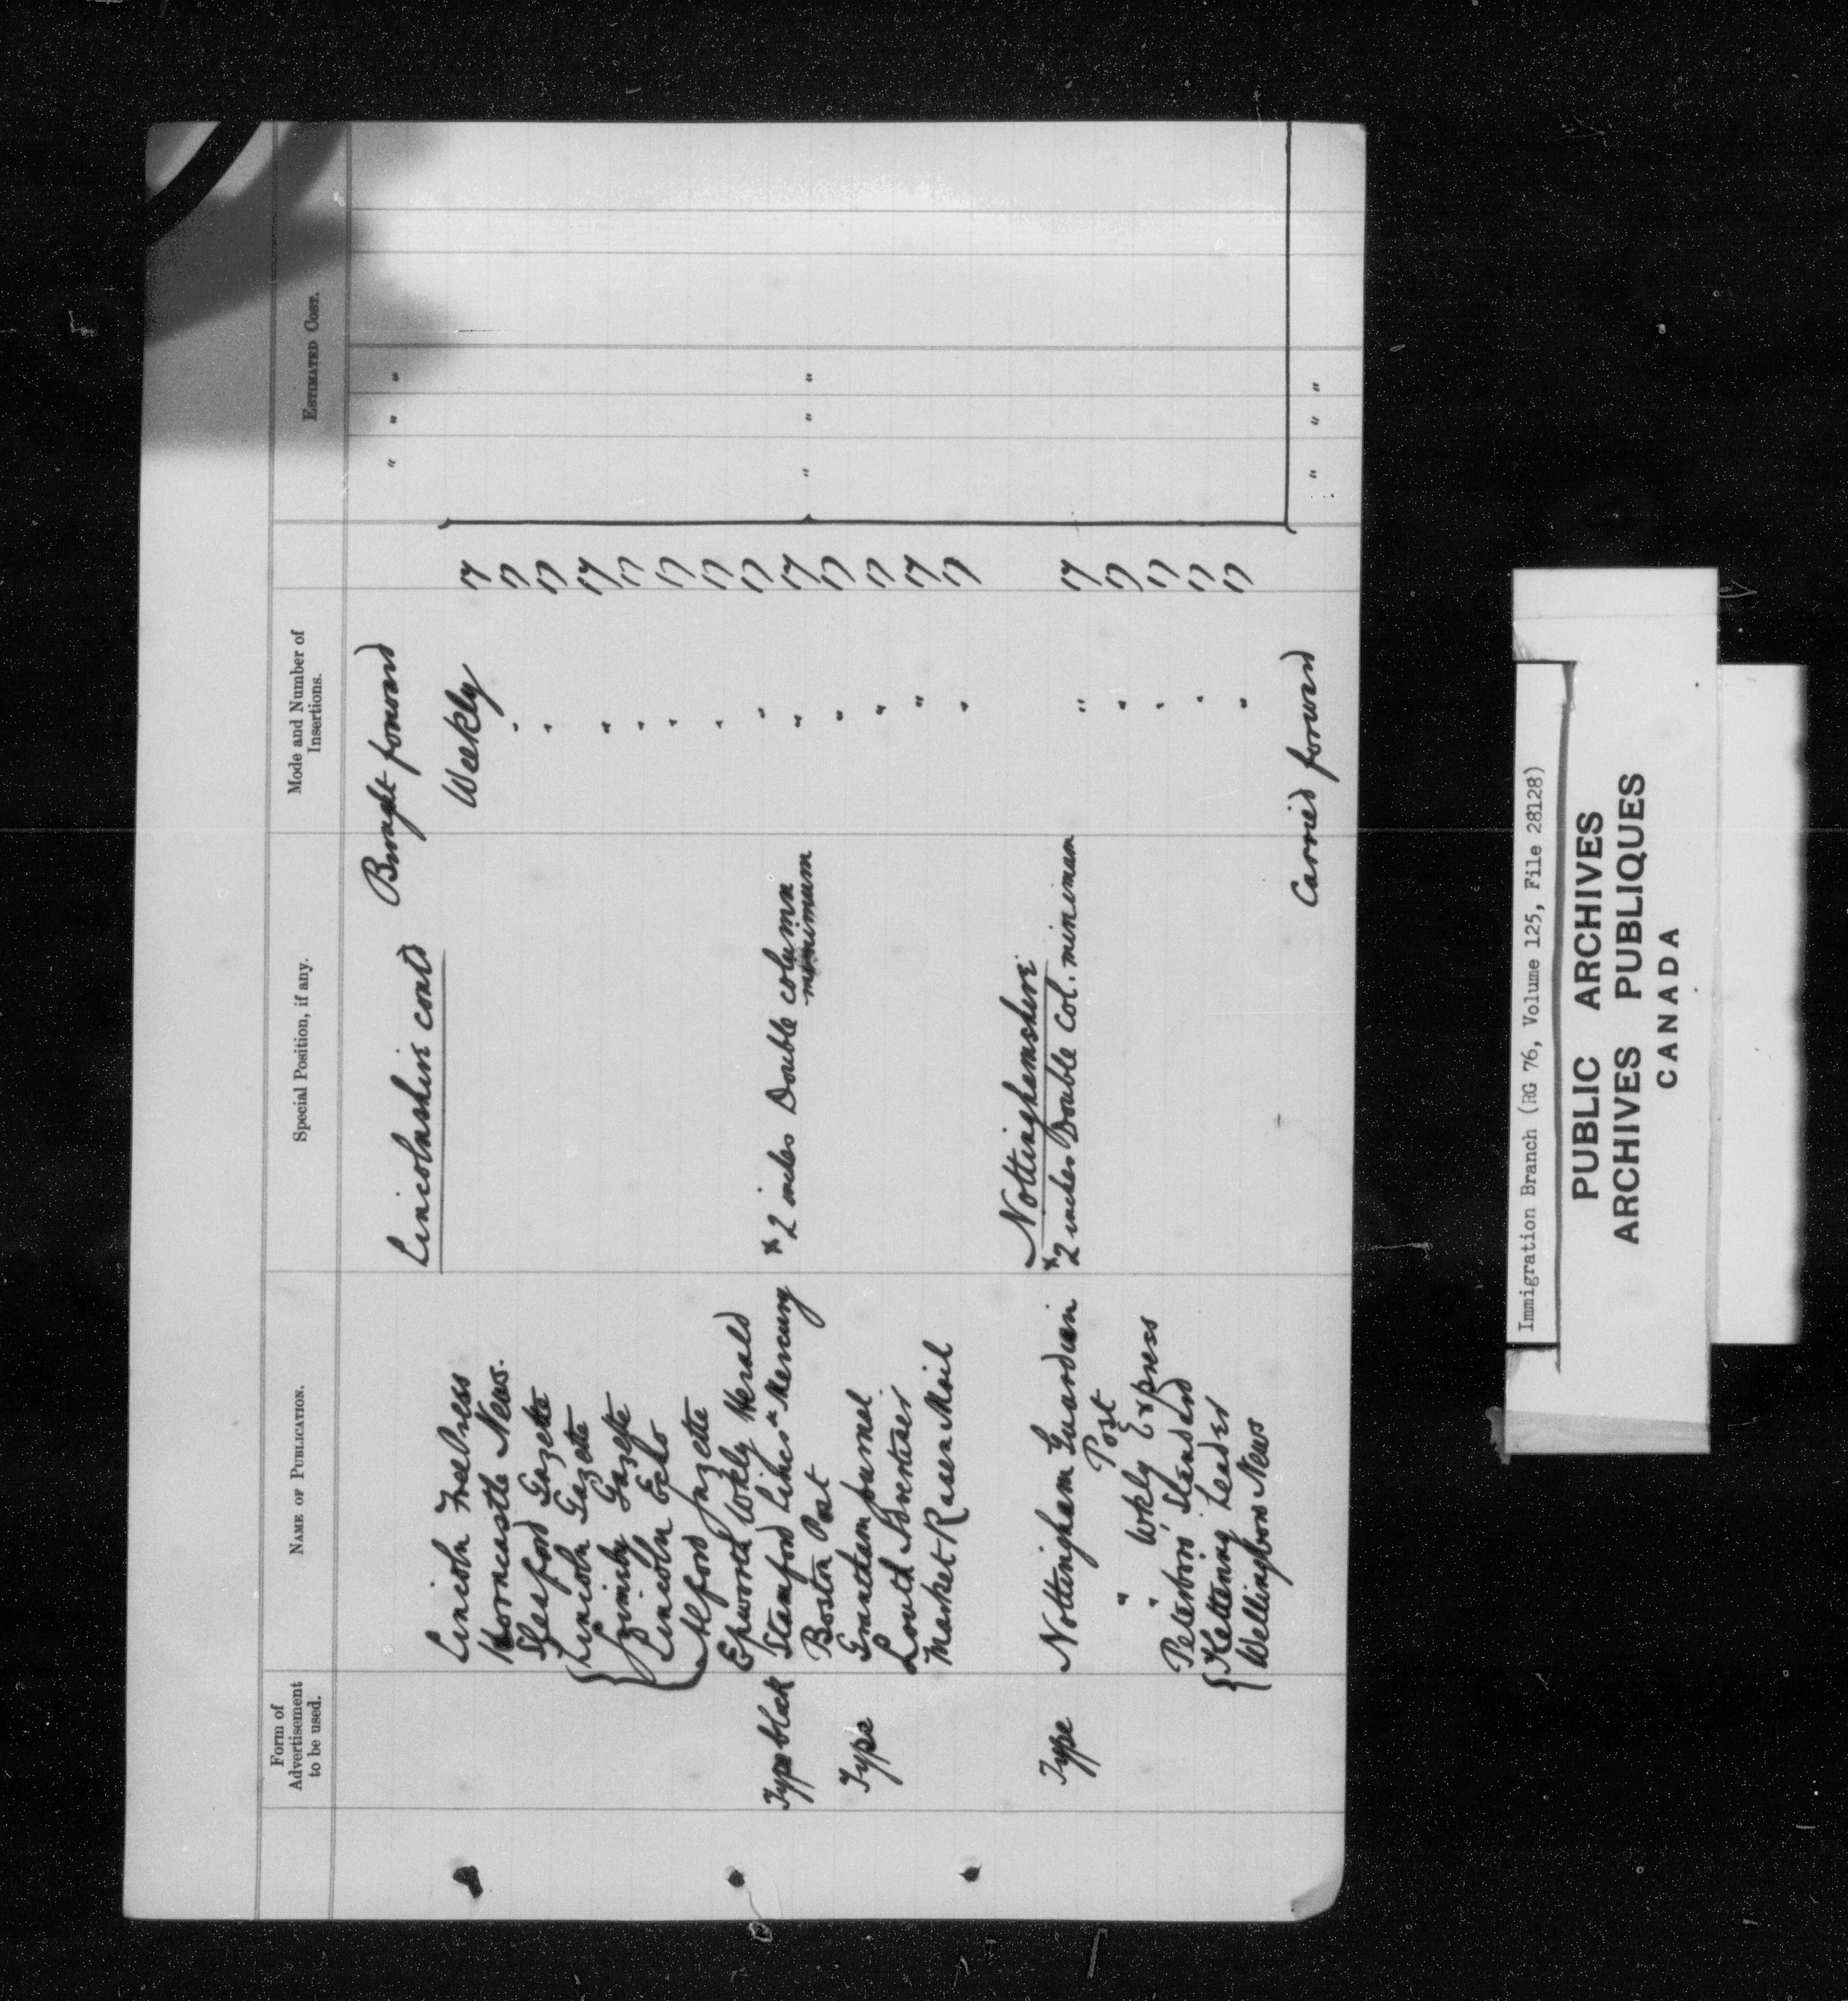 Form of Advertisement to be used. NAME OF PUBLICATION. Special Position, if any. Mode and Number of Insertions. ESTIMATED COST.
Brought forward " " "
Lincolnshire contd
Lincoln Free Press Weekly 17
Horncastle News. " 17
Sleaford Gazette " 17
{ Lincoln Gazette " 17
Grimsby Gazette " 17
{ Lincoln Echo " 17
Alford Gazette " 17
Epworth Wkly Herald " 17
Type block Stamford Lincs" Mercury * 2 inches Double column minimum " 17 " " "
Boston Post " 17
Type Grantham Journal " 17
Louth Advertiser " 17
Market Rasen Mail " 17
Nottinghamshire
Type Nottingham Guardian * 2 inches Double Col. minimum " 17
" Post " 17
" Wkly Express " 17
Peterboro' Standard " 17
{ Kettering Leader " 17
Wellingboro News
Carried forward " " "
Immigration Branch (RG 76, Volume 125, File 28128)
PUBLIC ARCHIVES
ARCHIVES PUBLIQUES
CANADA